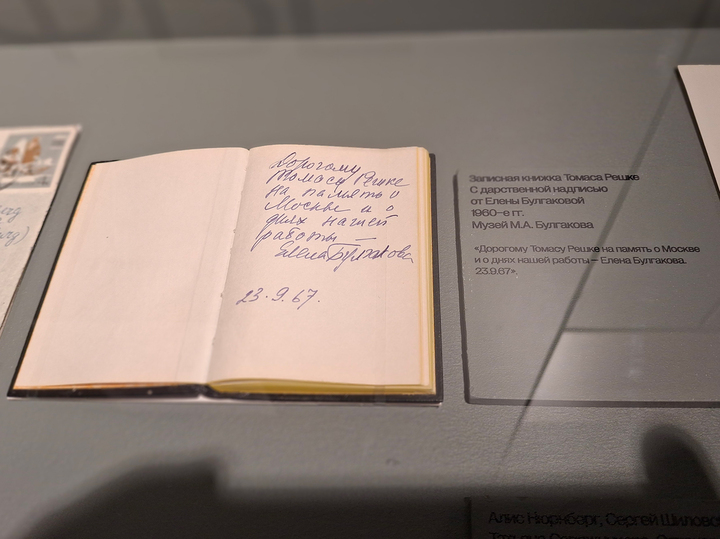 Дорогому
Томасу Решке
на память о
Москве и о
днях нашей
работы —
Елена Булгакова
23.9.67.
Записная книжка Томаса Решке
С дарственной надписью
от Елены Булгаковой
1960-е гг.
Музей М.А. Булгакова
«Дорогому Томасу Решке на память о Москве
и о днях нашей работы – Елена Булгакова.
23.9.67».
Алис Нюрнберг, Сергей Шилов